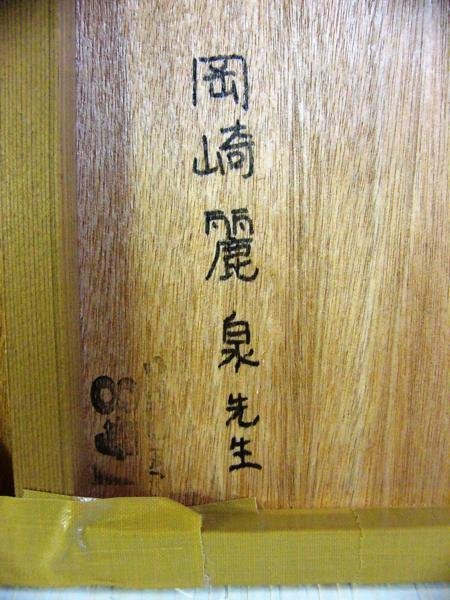 岡崎麗泉先生